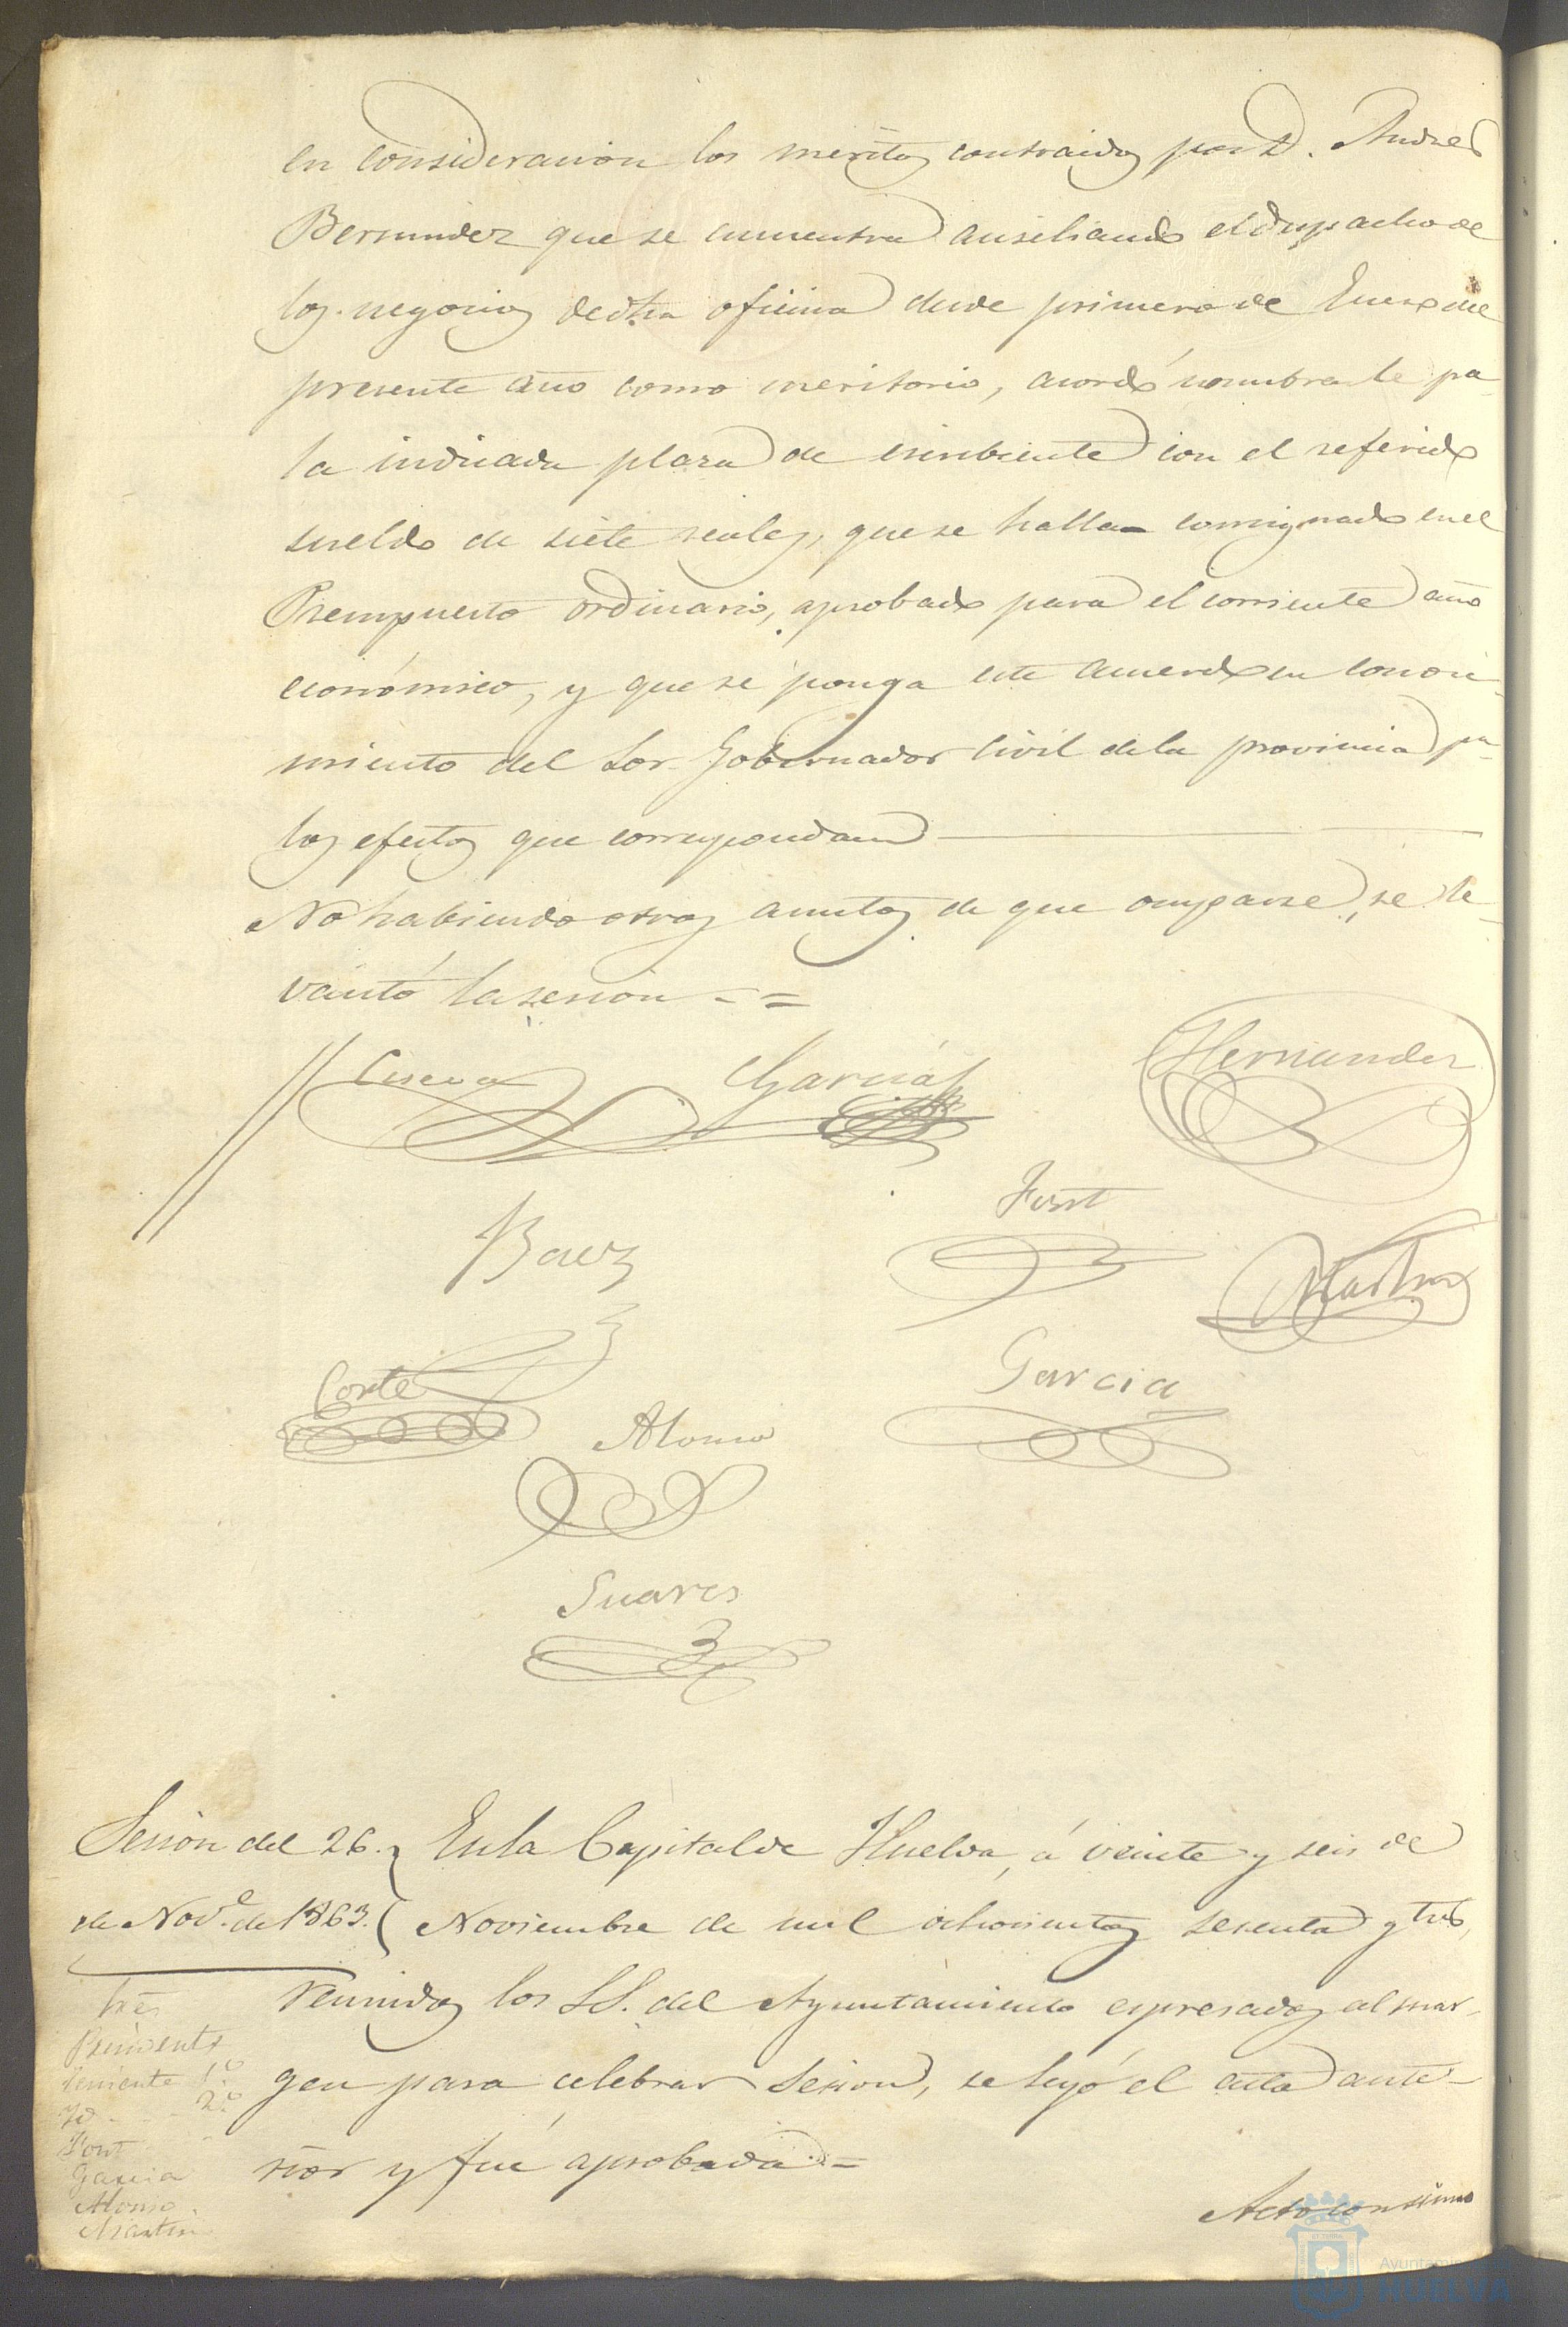 en consideracion los meritos contraidos por D. Andres
Bermudez que se encuentra ausiliando el despacho de
los negocios de dha oficina desde primero de Enero del
presente año como meritorio, acordó nombrarle pa
la indicada plaza de escribiente con el referido
sueldo de siete reales, que se halla consignado en el
Presupuesto ordinario, aprobado para el corriente año
económico, y que se ponga este acuerdo en conoci-
miento del Sor. Gobernador Civil de la provincia pa
los efectos que correspondan
No habiendo otros asuntos de que ocuparse, se le-
vantó la sesion = =
Garcia Hernandez
Baez Font
Martin
Corte Garcia
Alonso
Suares
Sesion del 26.
de Nove. de 1863.
En la Capital de Huelva, á veinte y seis de
Noviembre de mil ochocientos sesenta y tres,
reunidos los SS. del Ayuntamiento espresados al mar-
gen para celebrar Sesion, se leyó el acta ante-
rior y fué aprobada =
Sres.
Presidente
Teniente 1.º
Yd - - - 2.º
Font
Garcia
Alonso
Martin
Acto continuo
Ayuntami
HUELVA